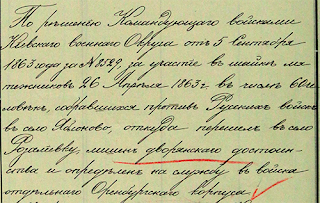 По рѣшенію Командующаго войсками
Кіевскаго военнаго Округа отъ 5 Сентября
1863 года за № 8529, за участіе въ шайкѣ мя
тежниковъ 26 Апрѣля 1863 г. въ числѣ 60 че
ловѣкъ, собравшихся противъ Русскихъ войскъ
въ село Яблоново, откуда перешелъ въ село
Розалевку, лишенъ дворянскаго достоин-
ства и опредѣленъ на службу въ войска
отдѣльнаго Оренбургскаго корпуса